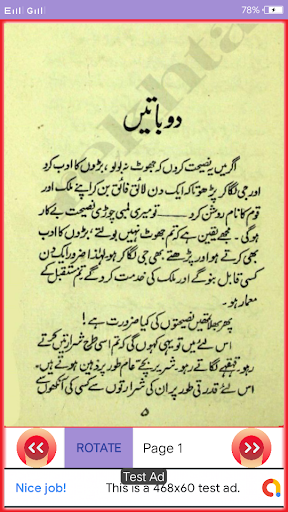 78%
rekhta
دو باتیں
اگر میں یہ نصیحت کروں کہ جھوٹ نہ بولو، بڑوں کا ادب کرو
اور جی لگا کر پڑھو تاکہ ایک دن لائق فائق بن کر اپنے ملک اور
قوم کا نام روشن کرو ـــــ تو میری لمبی چوڑی نصیحت بے کار
ہوگی۔ مجھے یقین ہے کہ تم جھوٹ نہیں بولتے، بڑوں کا ادب
بھی کرتے ہو اور پڑھتے بھی جی لگا کر ہو۔ لہٰذا ضرور ایک دن
کسی قابل بنو گے اور ملک کی خدمت کرو گے۔ تم مستقبل کے
معمار ہو۔
پھر بھلا تمہیں نصیحتوں کی کیا ضرورت ہے!
اس لئے میں تو یہی کہوں گی کہ تم اسی طرح شرارتیں کرتے
رہو۔ قہقہے لگاتے رہو۔ شریر بچے عام طور پر ذہین ہوتے ہیں۔
اس لئے قدرتی طور پر ان کی شرارتوں سے کسی کی آنکھوں سے
۵
ROTATE
Page 1
Test Ad
Nice job!
This is a 468x60 test ad.